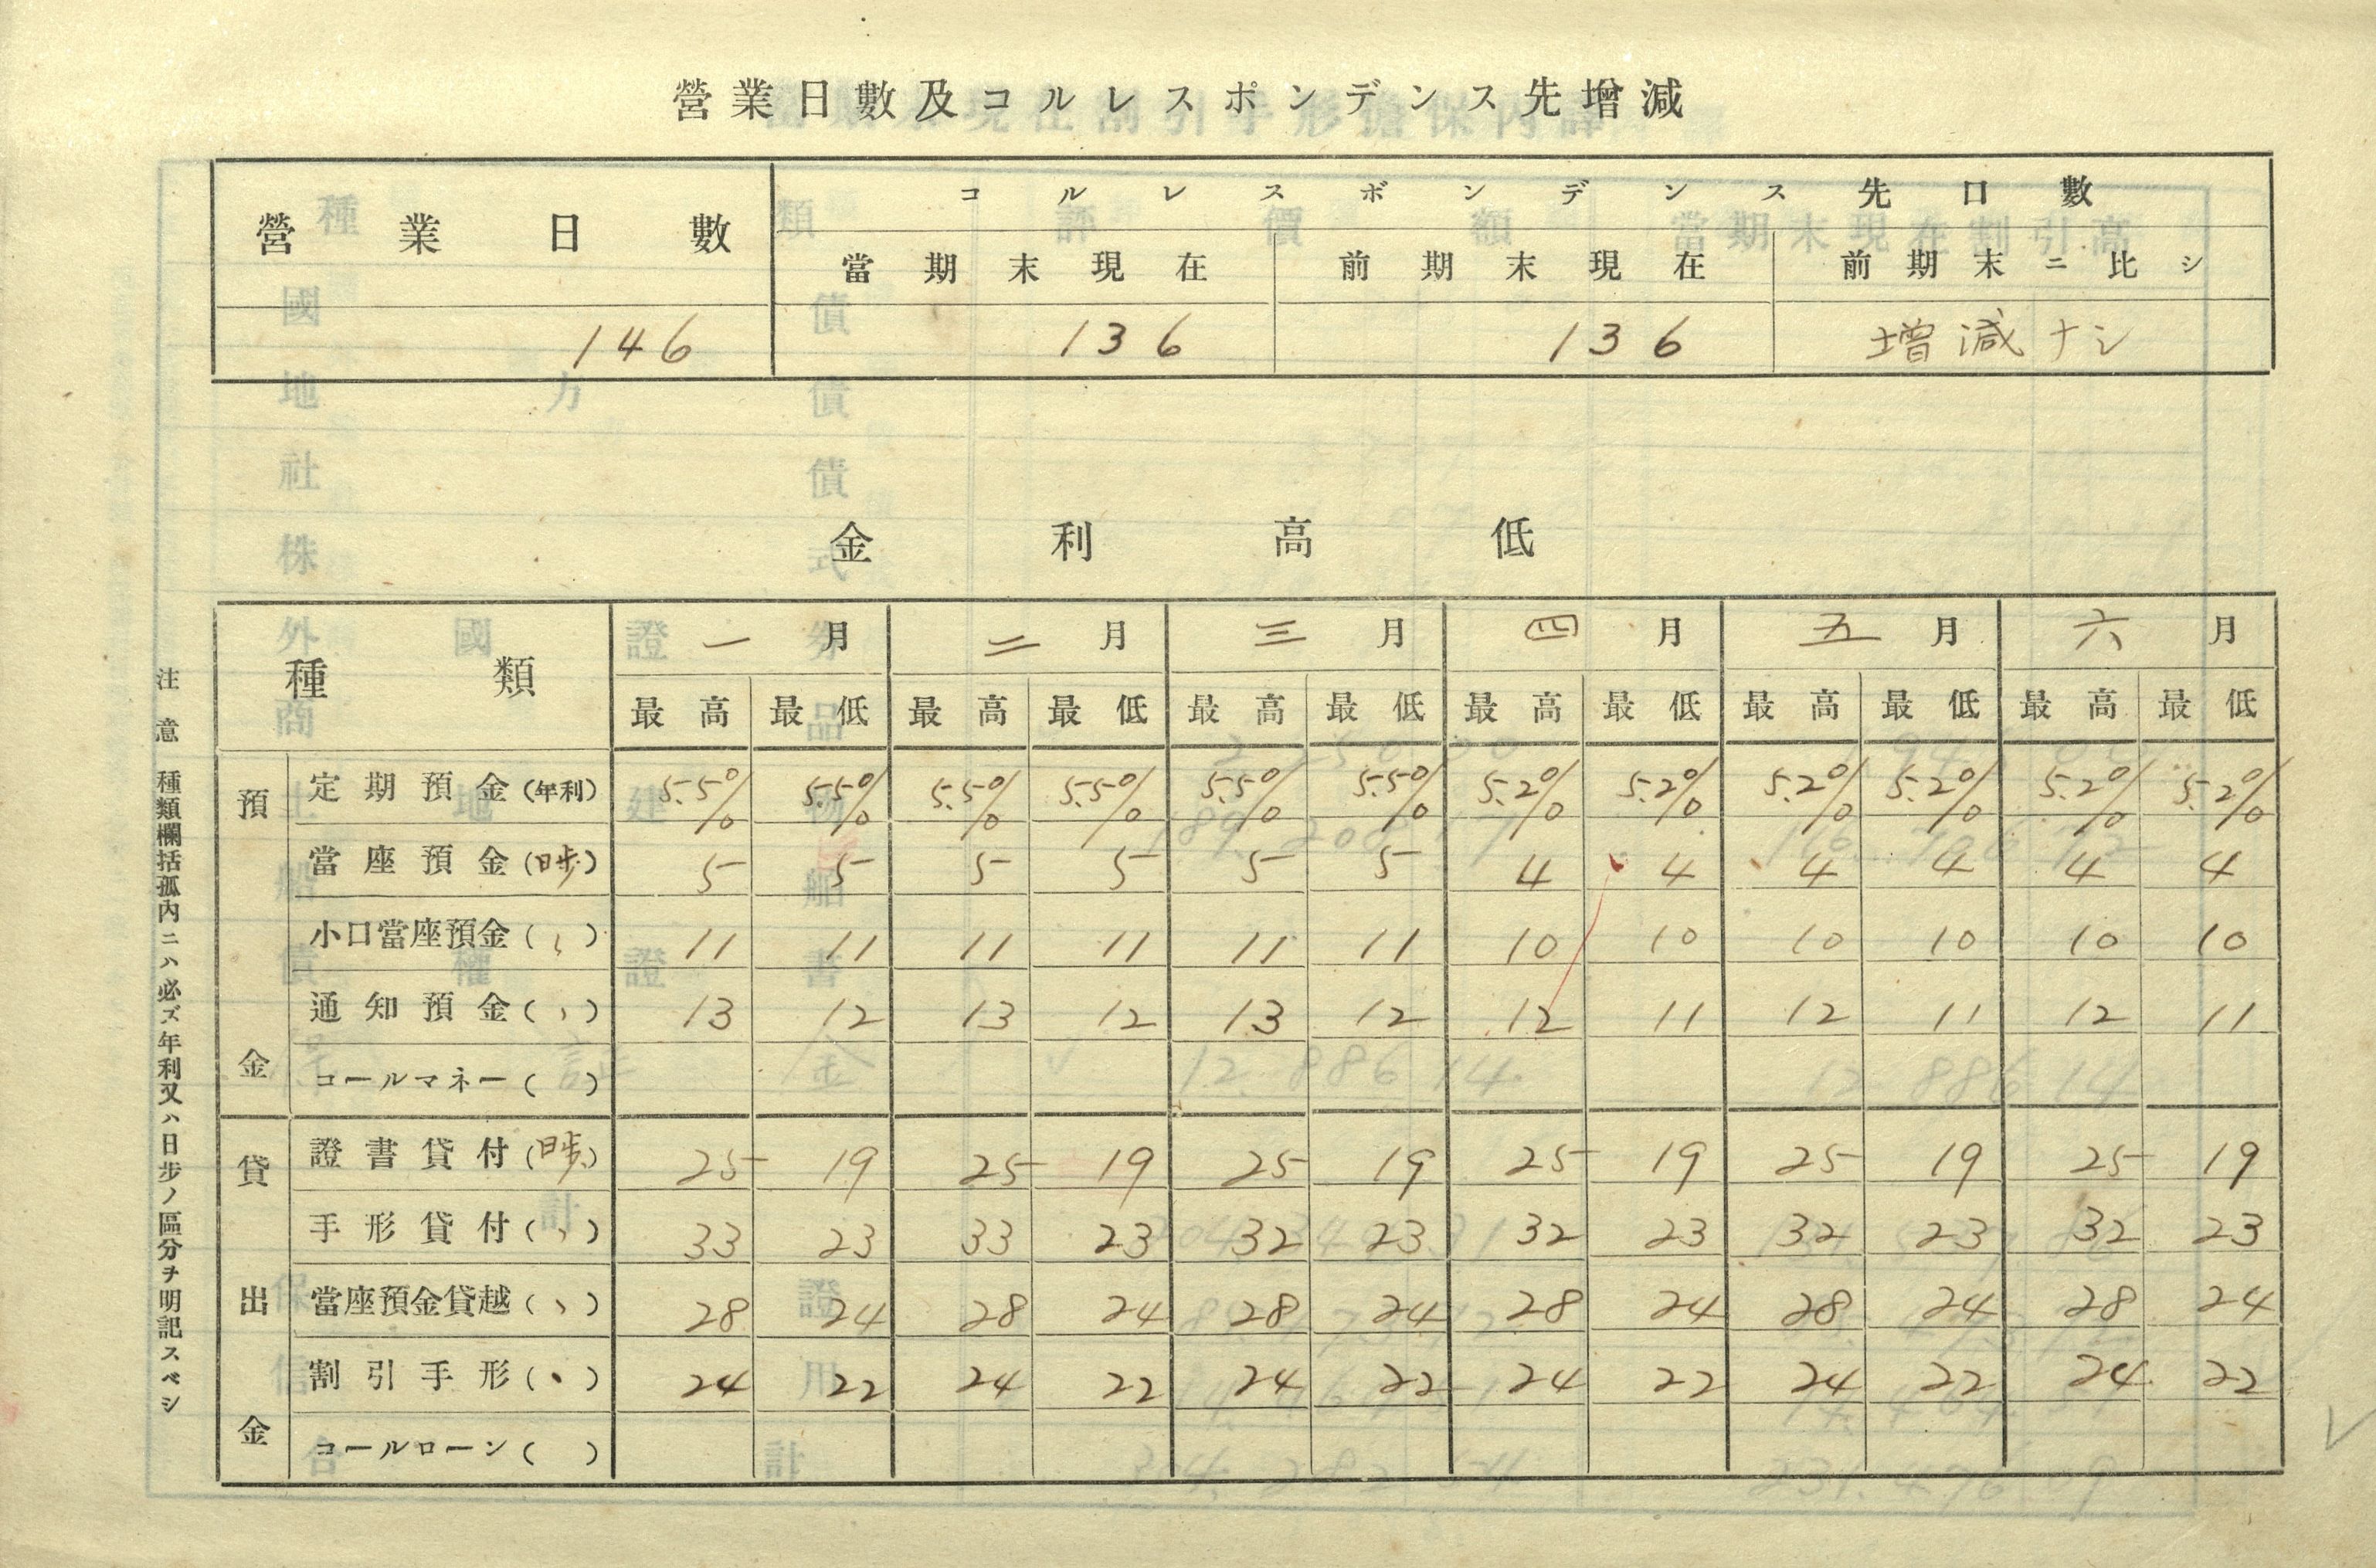 營業日數及コルレスポンデンス先增減
營業日數 コルレスポンデンス先口數
當期末現在 前期末現在 前期末ニ比シ
146 136 136 増減ナシ
金利高低
種類 一月 二月 三月 四月 五月 六月
最高 最低 最高 最低 最高 最低 最高 最低 最高 最低 最高 最低
預金
定期預金(年利) 5.5% 5.5% 5.5% 5.5% 5.5% 5.5% 5.2% 5.2% 5.2% 5.2% 5.2% 5.2%
當座預金(日步) 5 5 5 5 5 5 4 4 4 4 4 4
小口當座預金(〻) 11 11 11 11 11 11 10 10 10 10 10 10
通知預金(〻) 13 12 13 12 13 12 12 11 12 11 12 11
コールマネー( )
貸出金
證書貸付(日步) 25 19 25 19 25 19 25 19 25 19 25 19
手形貸付(〻) 33 23 33 23 32 23 32 23 32 23 32 23
當座預金貸越(〻) 28 24 28 24 28 24 28 24 28 24 28 24
割引手形(〻) 24 22 24 22 24 22 24 22 24 22 24 22
コールローン( )
注意 種類欄括孤內ニハ必ズ年利又ハ日步ノ區分ヲ明記スベシ